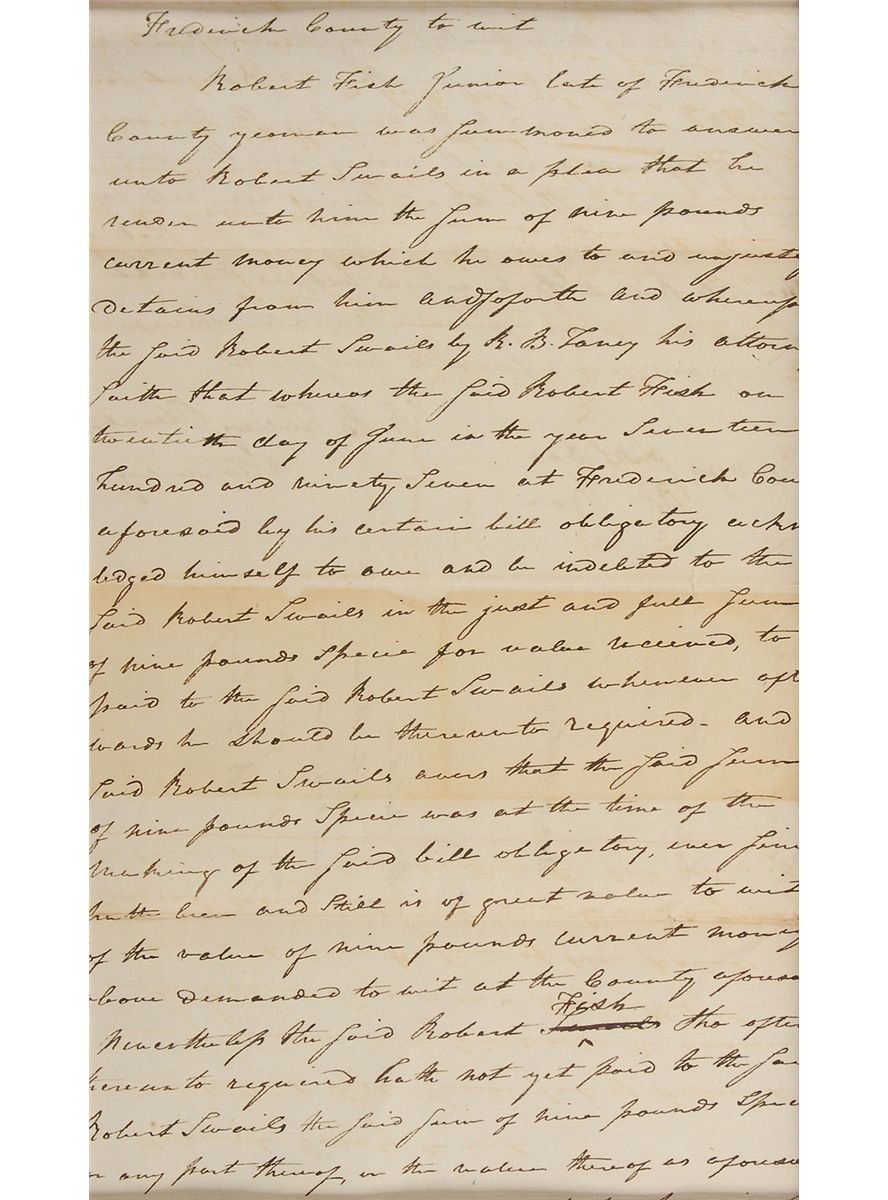 Frederick County to wit
Robert Fish Junior late of Frederick
County yeoman was Summoned to answer
unto Robert Swails in a plea that he
render unto him the Sum of nine pounds
current money which he owes to and unjustly
detains from him andsoforth and whereup
the Said Robert Swails by R. B. Taney his attorn
Saith that whereas the Said Robert Fish on
twentieth day of June in the year Seventeen
hundred and ninety Seven at Frederick Cou
aforesaid by his certain bill obligatory ackn
ledged himself to owe and be indebted to the
Said Robert Swails in the just and full Sum
of nine pounds Specie for value received, to
paid to the Said Robert Swails whenever aft
wards he should be thereunto required - and
Said Robert Swails avers that the Said Sum
of nine pounds Specie was at the time of the
making of the Said bill obligatory, ever Sin
hath been and Still is of great value to wit
of the value of nine pounds current money
above demanded to wit at the County aforesa
Nevertheless the Said Robert Fish tho often
hereunto required hath not yet paid to the Sa
Robert Swails the Said Sum of nine pounds Spec
or any part thereof, or the value thereof as aforesa